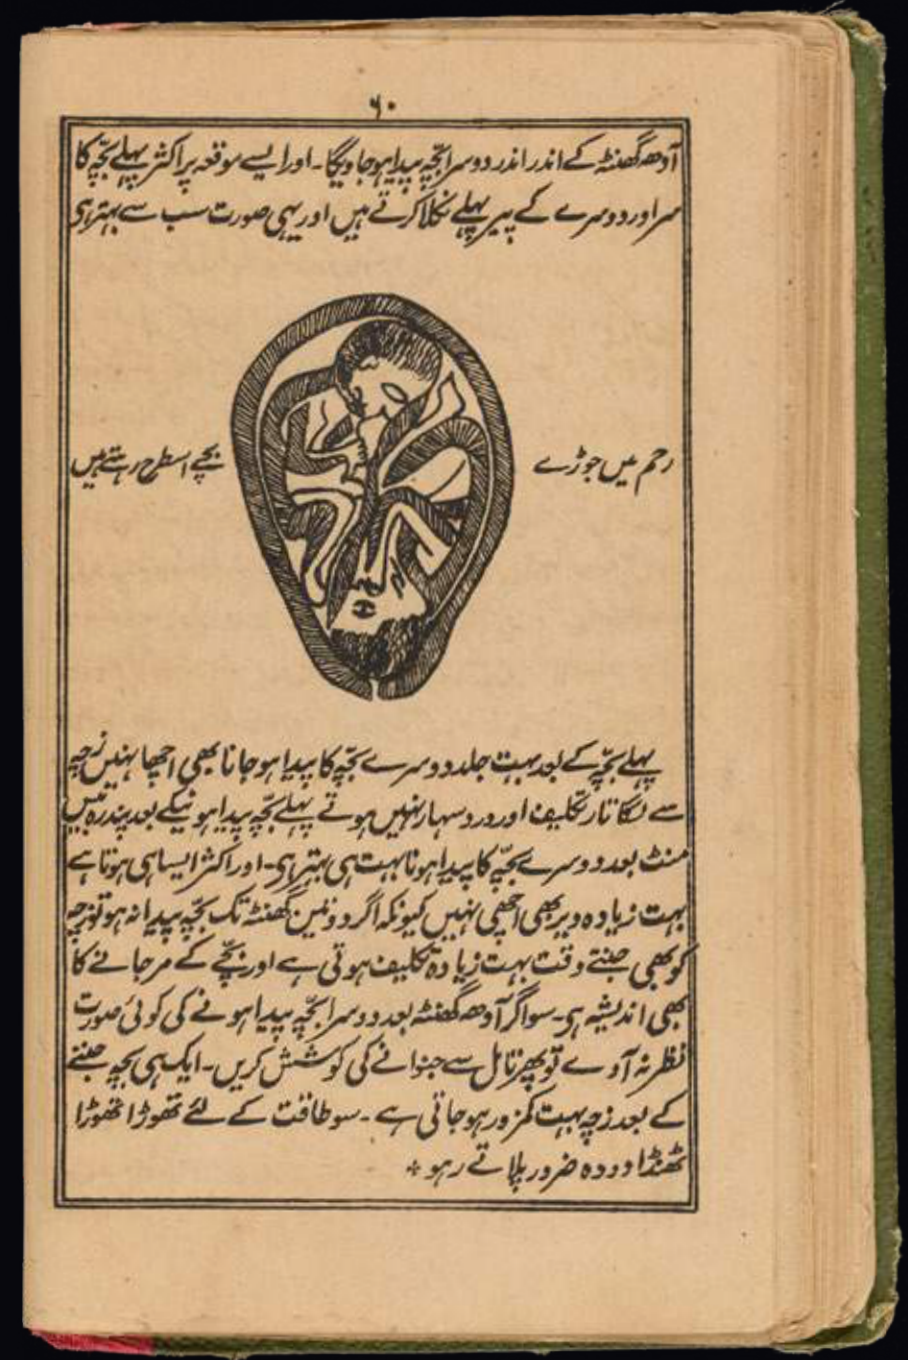 ۶۰
آدھ گھنٹہ کے اندر اندر دوسرا بچّہ پیدا ہو جاویگا۔ اور ایسے موقعہ پر اکثر پہلے بچّہ کا
سر اور دوسرے کے پیر پہلے نکلا کرتے ہیں اور یہی صورت سب سے بہتر ہی
رحم میں جوڑے
بچے اسطرح رہتے ہیں
پہلے بچّہ کے بعد بہت جلد دوسرے بچّہ کا پیدا ہو جانا بھی اچھا نہیں زچہ
سے لگاتار تکلیف اور درد سہار نہیں ہوتے پہلے بچّہ پیدا ہونیکے بعد پندرہ بیس
منٹ بعد دوسرے بچّہ کا پیدا ہونا بہت ہی بہتر ہی۔ اور اکثر ایسا ہی ہوتا ہے
بہت زیادہ دیر بھی اچھی نہیں کیونکہ اگر دو تین گھنٹہ تک بچّہ پیدا نہ ہو تو زچہ
کو بھی جنتے وقت بہت زیادہ تکلیف ہوتی ہے اور بچّے کے مر جانے کا
بھی اندیشہ ہی۔ سو اگر آدھ گھنٹہ بعد دوسرا بچّہ پیدا ہونے کی کوئی صورت
نظر نہ آوے تو پھر تامل سے جنوانے کی کوشش کریں۔ ایک ہی بچہ جننے
کے بعد زچہ بہت کمزور ہو جاتی ہے۔ سو طاقت کے لئے تھوڑا تھوڑا
ٹھنڈا دودہ ضرور پلاتے رہو ٭